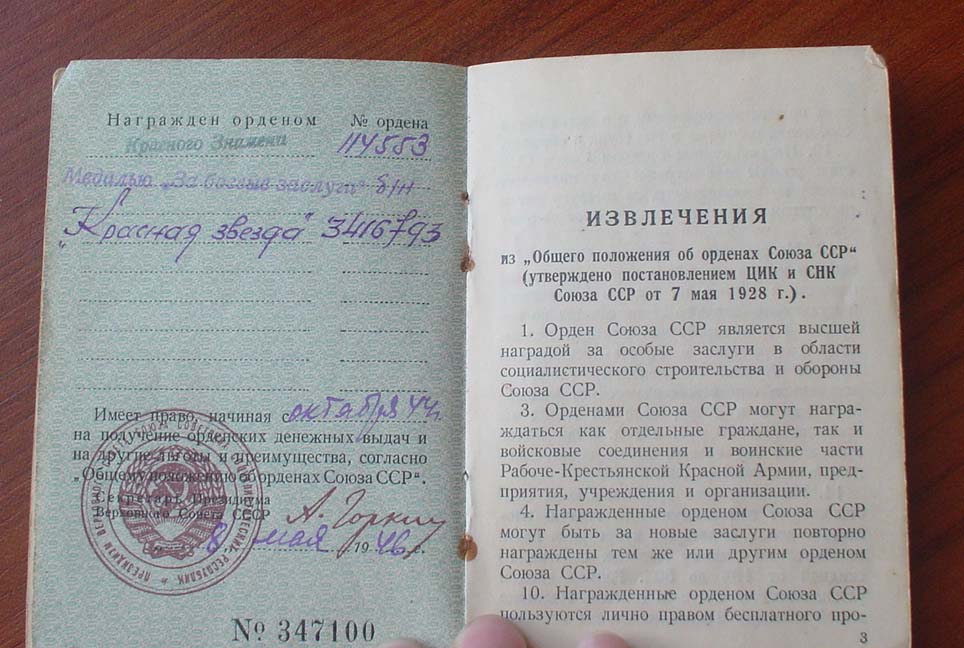 Награжден орденом № ордена
Красного Знамени 114553
Медалью „За боевые заслуги" б/н
„Красная звезда" 3416793
Имеет право, начиная с октября 44 г.
на получение орденских денежных выдач и
на другие льготы и преимущества, согласно
„Общему положению об орденах Союза ССР".
Секретарь Президиума
Верховного Совета СССР
А. Горкин
8 мая 1946 г.
№ 347100
ИЗВЛЕЧЕНИЯ
из „Общего положения об орденах Союза ССР"
(утверждено постановлением ЦИК и СНК
Союза ССР от 7 мая 1928 г.).
1. Орден Союза ССР является высшей
наградой за особые заслуги в области
социалистического строительства и обороны
Союза ССР.
3. Орденами Союза ССР могут награ-
ждаться как отдельные граждане, так и
войсковые соединения и воинские части
Рабоче-Крестьянской Красной Армии, пред-
приятия, учреждения и организации.
4. Награжденные орденом Союза ССР
могут быть за новые заслуги повторно
награждены тем же или другим орденом
Союза ССР.
10. Награжденные орденом Союза ССР
пользуются лично правом бесплатного про-
3